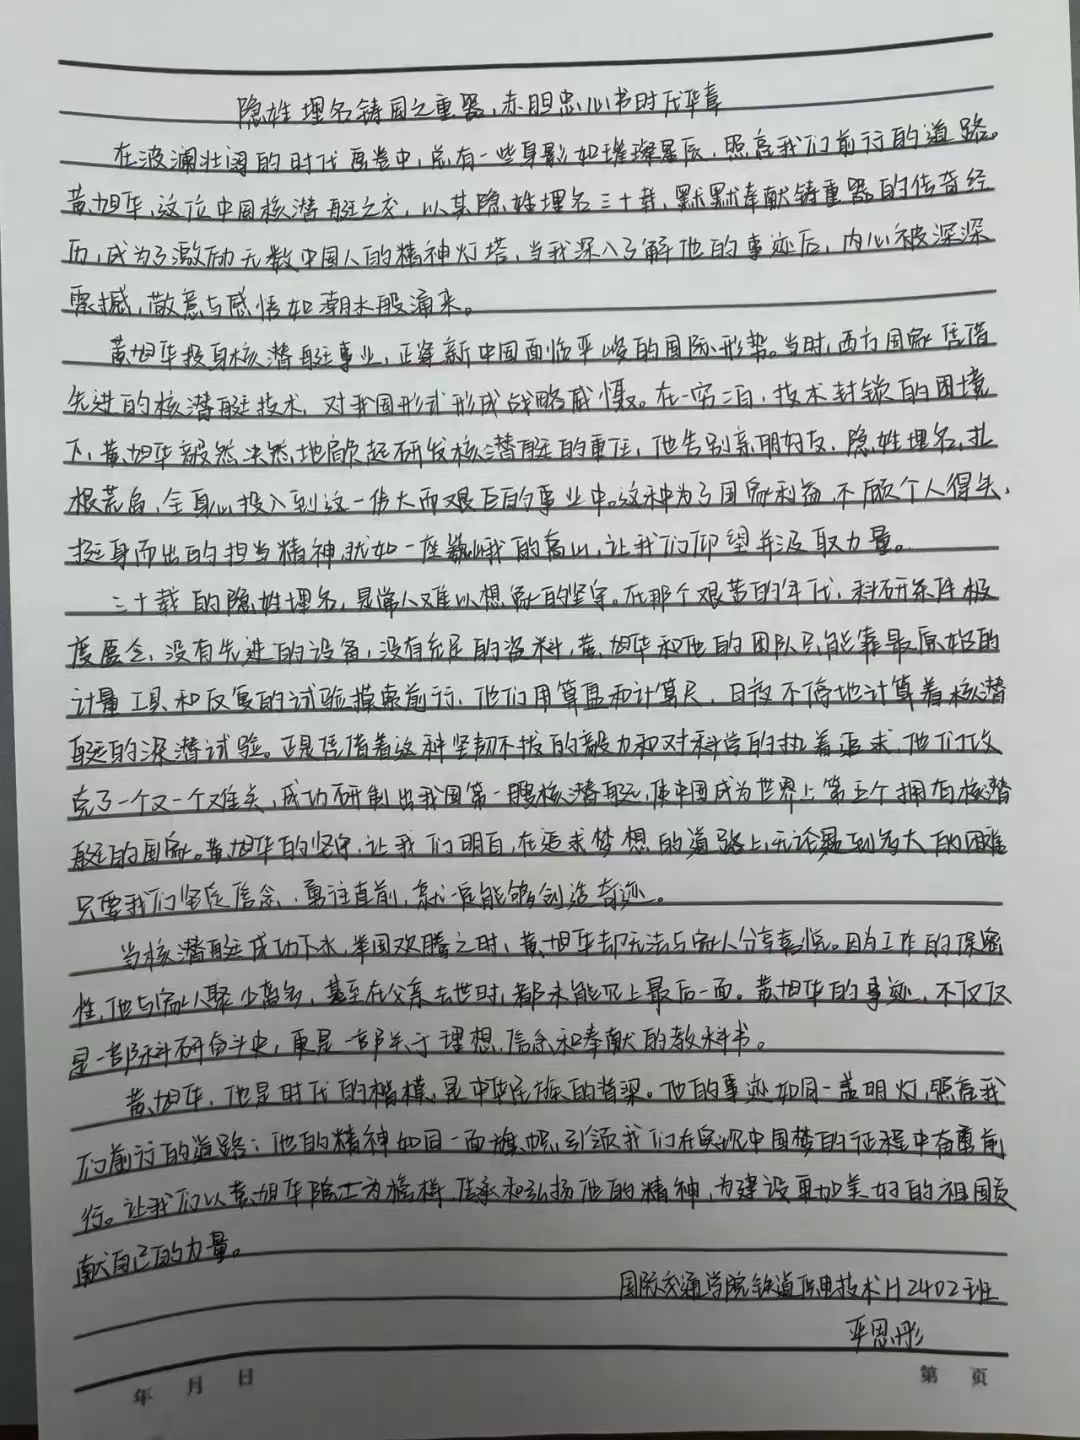 隐姓埋名铸国之重器，赤胆忠心书时代华章
在波澜壮阔的时代画卷中，总有一些身影如璀璨星辰，照亮我们前行的道路。
黄旭华，这位中国核潜艇之父，以其隐姓埋名三十载，默默奉献铸重器的传奇经
历，成为了激励无数中国人的精神灯塔，当我深入了解他的事迹后，内心被深深
震撼，敬意与感情如潮水般涌来。
黄旭华投身核潜艇事业，正逢新中国面临严峻的国际形势。当时，西方国家凭借
先进的核潜艇技术，对我国形式形成战略威慑。在一穷二白，技术封锁的困境
下，黄旭华毅然决然地肩负起研发核潜艇的重任，他告别亲朋好友，隐姓埋名，扎
根荒岛，全身心投入到这一伟大而艰巨的事业中。这种为了国家利益，不顾个人得失，
挺身而出的担当精神，犹如一座巍峨的高山，让我们仰望并汲取力量。
三十载的隐姓埋名，是常人难以想象的坚守。在那个艰苦的年代，科研条件极
度匮乏，没有先进的设备，没有充足的资料，黄旭华和他的团队只能靠最原始的
计量工具和反复的试验摸索前行，他们用算盘和计算尺，日夜不停地计算着核潜
艇的深潜试验。正是凭借着这种坚韧不拔的毅力和对科学的执着追求，他们攻
克了一个又一个难关，成功研制出我国第一艘核潜艇，使中国成为世界上第五个拥有核潜
艇的国家。黄旭华的坚守，让我们明白，在追求梦想的道路上，无论遇到多大的困难
只要我们坚定信念，勇往直前，就一定能够创造奇迹。
当核潜艇成功下水，举国欢腾之时，黄旭华却无法与家人分享喜悦。因为工作的保密
性，他与家人聚少离多，甚至在父亲去世时，都未能见上最后一面。黄旭华的事迹，不仅仅
是一部科研奋斗史，更是一部关于理想，信念和奉献的教科书。
黄旭华，他是时代的楷模，是中华民族的脊梁。他的事迹如同一盏明灯，照亮我
们前行的道路；他的精神如同一面旗帜，引领我们在实现中国梦的征程中奋勇前
行。让我们以黄旭华院士为榜样，传承和弘扬他的精神，为建设更加美好的祖国贡
献自己的力量。
国际交通学院铁道供电技术H2402班
平恩彤
年 月 日 第 页